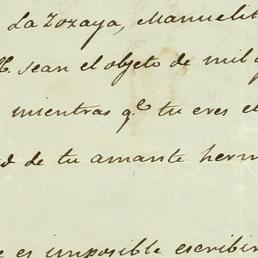 La Zozaya, Manuelit
sean el objeto de mil
mientras q.e tu eres el
d de tu amante herm
e es imposible escribir